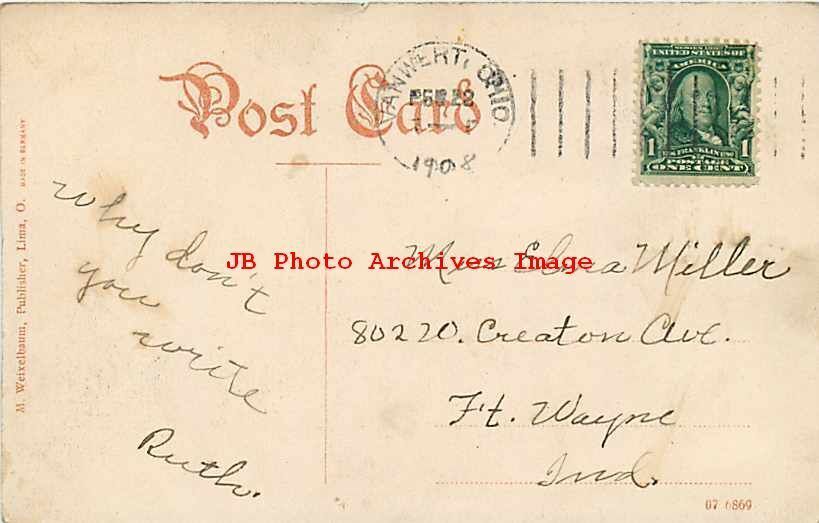 Post Card
VANWERT, OHIO.
1908
SERIES 1902
UNITED STATES OF
AMERICA
1 FRANKLIN 1
POSTAGE
ONE CENT
M. Weixelbaum, Publisher, Lima, O. MADE IN GERMANY
Why don't
you
write
Ruth.
JB Photo Archives Image
Miss Miller
Creaton Ave.
Ft. Wayne
Ind.
07 6869